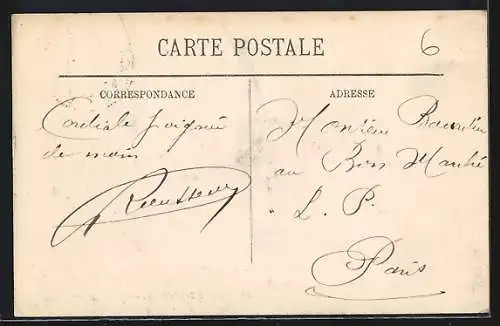 CARTE POSTALE
6
CORRESPONDANCE
Cordiale poignée
de main
ADRESSE
Monsieur
au Bon Marché
L. P.
Paris